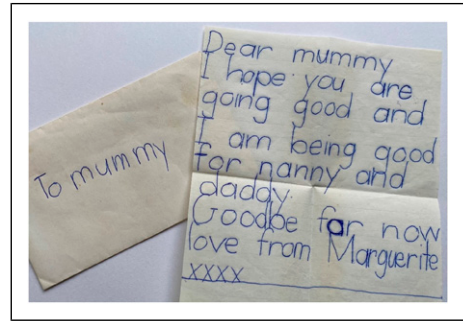 To mummy
Dear mummy
I hope you are
going good and
I am being good
for nanny and
daddy.
Goodbe for now
love from Marguerite
xxxx